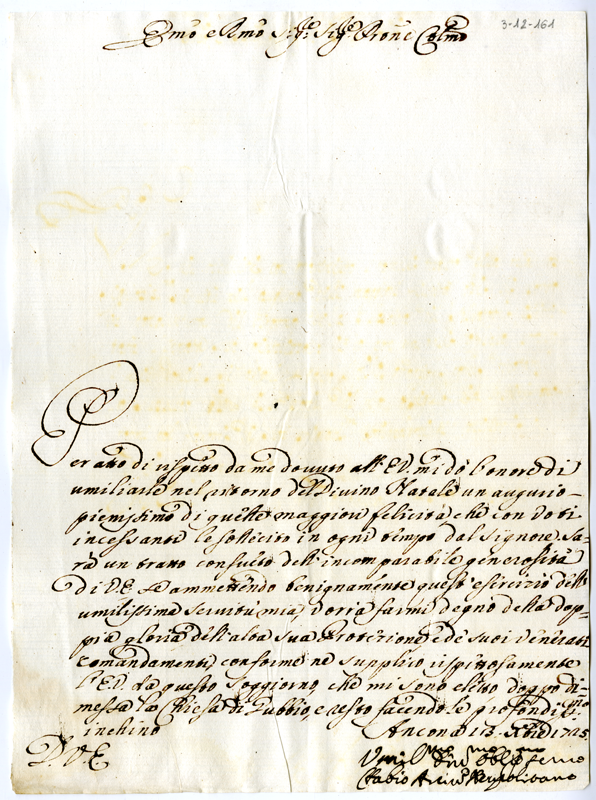 3-12-161
Emo e Rmo Sig.re Sig.re Prone Colmo
Per atto di rispetto da me dovuto all'E.V. mi dò l'onore di
umiliarle nel ritorno del Divino Natale un augurio
pienissimo di quelle maggiori felicità, che con voti
incessanti le sollecito in ogni tempo dal Signore. Sa-
rà un tratto consueto dell'incomparabile generosità
di V.E. se ammettendo benignamente quest'esercizio dell'
umilissima servitù mia, vorrà farmi degno della dop-
pia gloria dell'alta sua Protezione e de suoi venerati
comandamenti, conforme ne supplico rispettosamente
l'E.V. da questo soggiorno, che mi sono eletto doppo di-
messa la Chiesa di Gubbio, e resto facendole profondissimo
inchino
Ancona 13 Xbre 1725
D. V. E.
Fabio Arciv.o